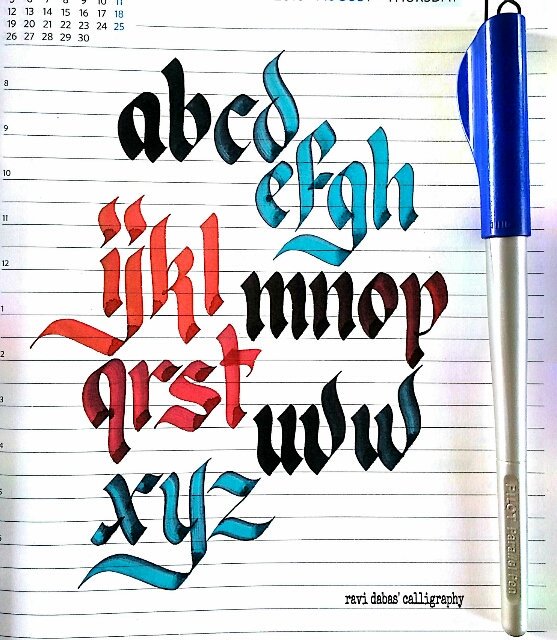 12 13 14 15 16 17 18
19 20 21 22 23 24 25
26 27 28 29 30
THURSDAY
8
9
10
11
12
1
2
3
4
5
abcd
efgh
ijkl
mnop
qrst
uvw
xyz
PILOT Parallel Pen
ravi dabas' calligraphy